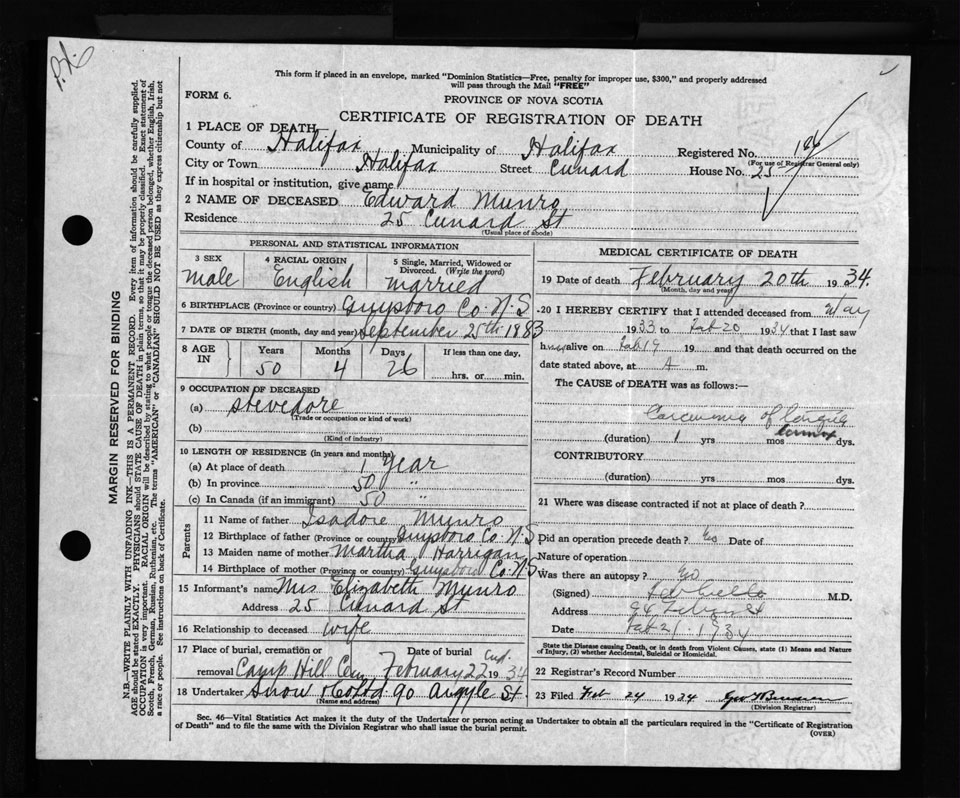 P.X.
This form if placed in an envelope, marked "Dominion Statistics—Free, penalty for improper use, $300," and properly addressed
will pass through the Mail "FREE"
FORM 6.
PROVINCE OF NOVA SCOTIA
CERTIFICATE OF REGISTRATION OF DEATH
1 PLACE OF DEATH
County of Halifax Municipality of Halifax Registered No. 186
(For use of Registrar General only)
City or Town Halifax Street Cunard House No. 25
If in hospital or institution, give name
2 NAME OF DECEASED Edward Munro
Residence 25 Cunard St
(Usual place of abode)
PERSONAL AND STATISTICAL INFORMATION
3 SEX male
4 RACIAL ORIGIN English
5 Single, Married, Widowed or
Divorced. (Write the word)
married
6 BIRTHPLACE (Province or country) Guysboro Co. N.S
7 DATE OF BIRTH (month, day and year) September 25th 1883
8 AGE IN Years 50 Months 4 Days 26 If less than one day,
hrs. or min.
9 OCCUPATION OF DECEASED
(a) stevedore
(Trade or occupation or kind of work)
(b)
(Kind of industry)
10 LENGTH OF RESIDENCE (in years and months)
(a) At place of death 1 year
(b) In province 50 "
(c) In Canada (if an immigrant) 50 "
Parents
11 Name of father Isadore Munro
12 Birthplace of father (Province or country) Guysboro Co. N.S
13 Maiden name of mother Martha Harrigan
14 Birthplace of mother (Province or country) Guysboro Co. N.S
15 Informant's name Mrs Elizabeth Munro
Address 25 Cunard St
16 Relationship to deceased wife
17 Place of burial, cremation or Date of burial
removal Camp Hill Cem February 22nd 1934
18 Undertaker Snow & Co Ltd 90 Argyle St.
(Name and address)
MEDICAL CERTIFICATE OF DEATH
19 Date of death February 20th 1934.
(Month, day and year)
20 I HEREBY CERTIFY that I attended deceased from May
1933 to Feb 20 1934 that I last saw
him alive on Feb 19 19 and that death occurred on the
date stated above, at A m.
The CAUSE of DEATH was as follows:
Carcinoma of tongue
(duration) 1 yrs mos dys.
CONTRIBUTORY
(duration) yrs mos dys.
21 Where was disease contracted if not at place of death?
Did an operation precede death? Date of
Nature of operation
Was there an autopsy?
(Signed) M.D.
Address
Date Feb 21. 1934
State the Disease causing Death, or in death from Violent Causes, state (1) Means and Nature
of Injury, (2) whether Accidental, Suicidal or Homicidal.
22 Registrar's Record Number
23 Filed Feb 24 1934
(Division Registrar)
Sec. 46—Vital Statistics Act makes it the duty of the Undertaker or person acting as Undertaker to obtain all the particulars required in the "Certificate of Registration
of Death" and to file the same with the Division Registrar who shall issue the burial permit.
(OVER)
MARGIN RESERVED FOR BINDING
N.B.—WRITE PLAINLY WITH UNFADING INK—THIS IS A PERMANENT RECORD. Every item of information should be carefully supplied.
AGE should be stated EXACTLY. PHYSICIANS should STATE CAUSE OF DEATH in plain terms, so that it may be properly classified. Exact statement of
OCCUPATION is very important. RACIAL ORIGIN will be described by stating to what people or tongue the deceased person belonged, whether English, Irish,
Scotch, French, German, Russian, Ruthenian, etc. The terms "AMERICAN" or "CANADIAN" SHOULD NOT BE USED as they express citizenship but not
a race or people. See instructions on back of Certificate.